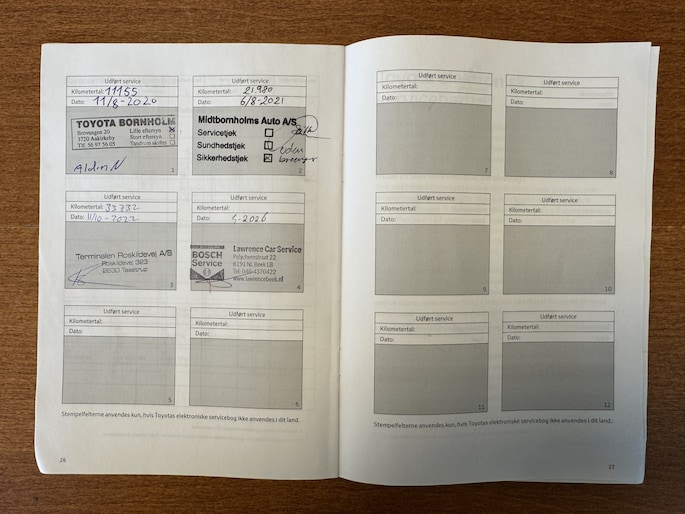 Udført service
Kilometertal: 11155
Dato: 11/8-2020
TOYOTA BORNHOLM
Brovangen 20
3720 Aakirkeby
Tlf. 56 97 56 05
Lille eftersyn
Stort eftersyn
Tandrem skiftet
1
Udført service
Kilometertal: 21.980
Dato: 6/8-2021
Midtbornholms Auto A/S
Servicetjek
Sundhedstjek
Sikkerhedstjek
2
Udført service
Kilometertal: 33732
Dato: 11/10-2022
Terminalen Roskildevej A/S
Roskildevej 323
2630 Taastrup
3
Udført service
Kilometertal:
Dato: 5-2026
BOSCH
Service
Lawrence Car Service
Polychemstraat 22
6191 NL Beek LB
Tel: 046-4370422
www.lawrencebeek.nl
4
Udført service
Kilometertal:
Dato:
5
Udført service
Kilometertal:
Dato:
6
Stempelfelterne anvendes kun, hvis Toyotas elektroniske servicebog ikke anvendes i dit land.
26
Udført service
Kilometertal:
Dato:
7
Udført service
Kilometertal:
Dato:
8
Udført service
Kilometertal:
Dato:
9
Udført service
Kilometertal:
Dato:
10
Udført service
Kilometertal:
Dato:
11
Udført service
Kilometertal:
Dato:
12
Stempelfelterne anvendes kun, hvis Toyotas elektroniske servicebog ikke anvendes i dit land.
27